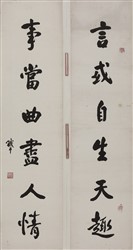 言或自生天趣
事當曲盡人情